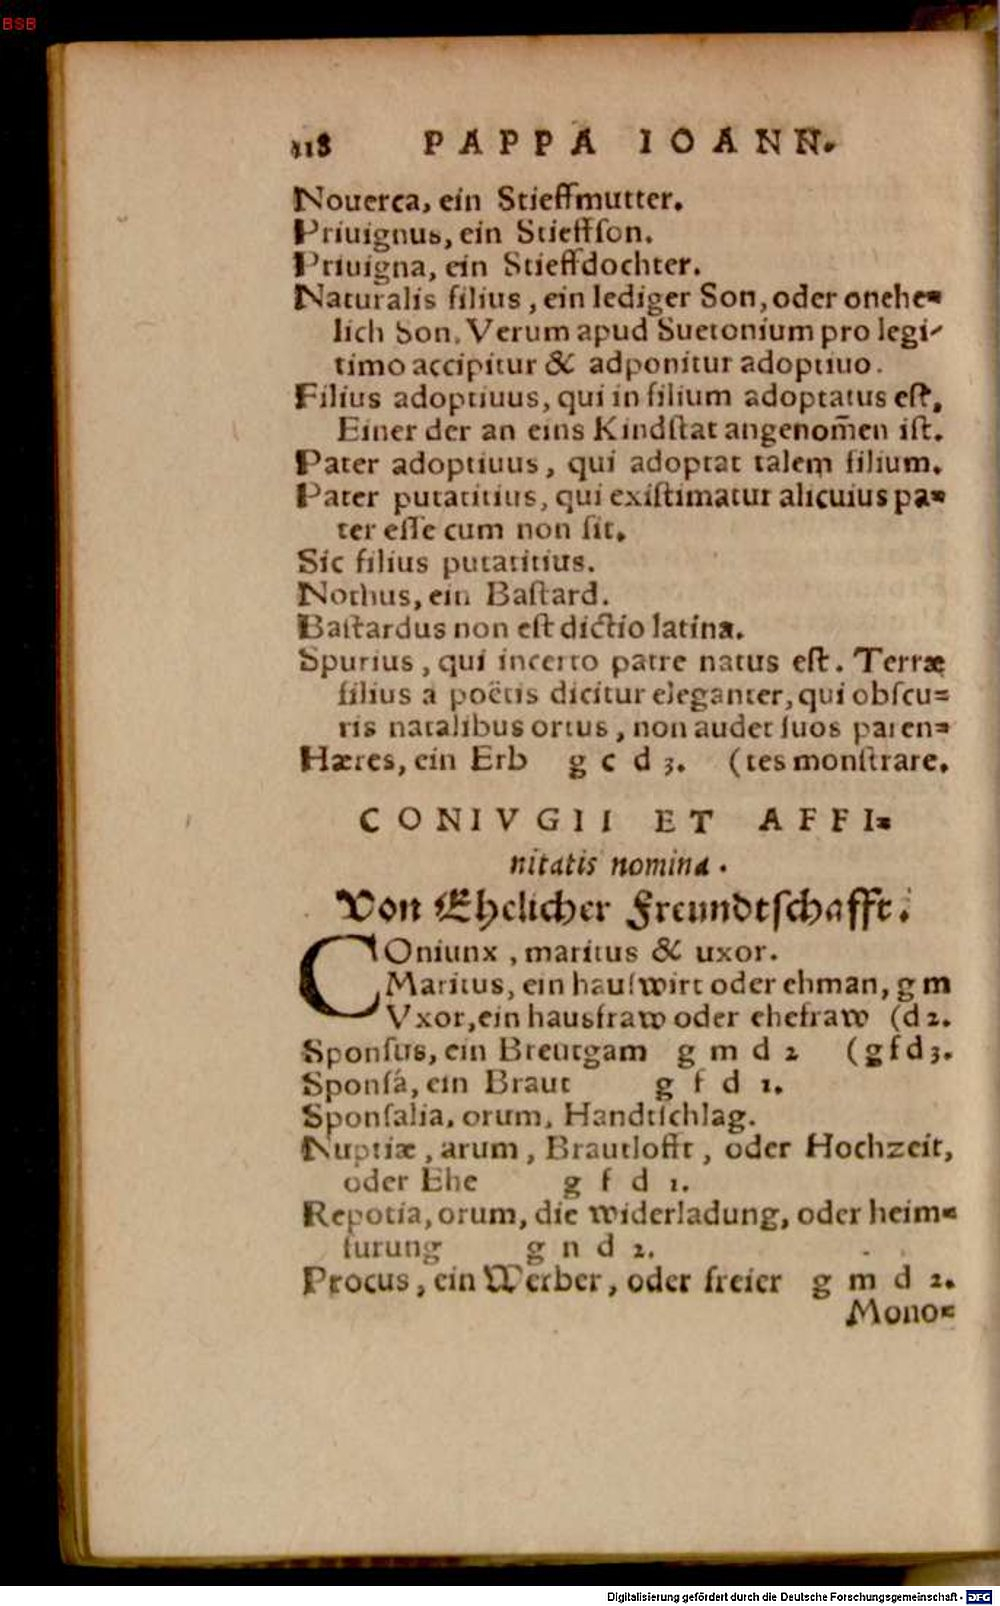 BSB
118 PAPPA IOANN.
Nouerca, ein Stieffmutter.
Priuignus, ein Stieffſon.
Priuigna, ein Stieffdochter.
Naturalis filius, ein lediger Son, oder onehe=
lich Son. Verum apud Suetonium pro legi-
timo accipitur & adponitur adoptiuo.
Filius adoptiuus, qui in filium adoptatus eſt,
Einer der an eins Kindſtat angenom̄en iſt.
Pater adoptiuus, qui adoptat talem filium.
Pater putatitius, qui exiſtimatur alicuius pa=
ter eſſe cum non ſit.
Sic filius putatitius.
Nothus, ein Baſtard.
Baſtardus non eſt dictio latina.
Spurius, qui incerto patre natus eſt. Terræ
filius a poëtis dicitur eleganter, qui obſcu=
ris natalibus ortus, non audet ſuos paren=
Hæres, ein Erb g c d 3. (tes monſtrare.
CONIVGII ET AFFI=
nitatis nomina.
Von Ehelicher Freundtſchafft.
COniunx, maritus & uxor.
Maritus, ein hauſwirt oder ehman, g m
Vxor, ein hausfraw oder ehefraw (d 2.
Sponſus, ein Breutgam g m d 2 (g f d 3.
Sponſá, ein Braut g f d 1.
Sponſalia, orum, Handtſchlag.
Nuptiæ, arum, Brautlofft, oder Hochzeit,
oder Ehe g f d 1.
Repotia, orum, die widerladung, oder heim=
furung g n d 2.
Procus, ein Werber, oder freier g m d 2.
Mono=
Digitalisierung gefördert durch die Deutsche Forschungsgemeinschaft - DFG